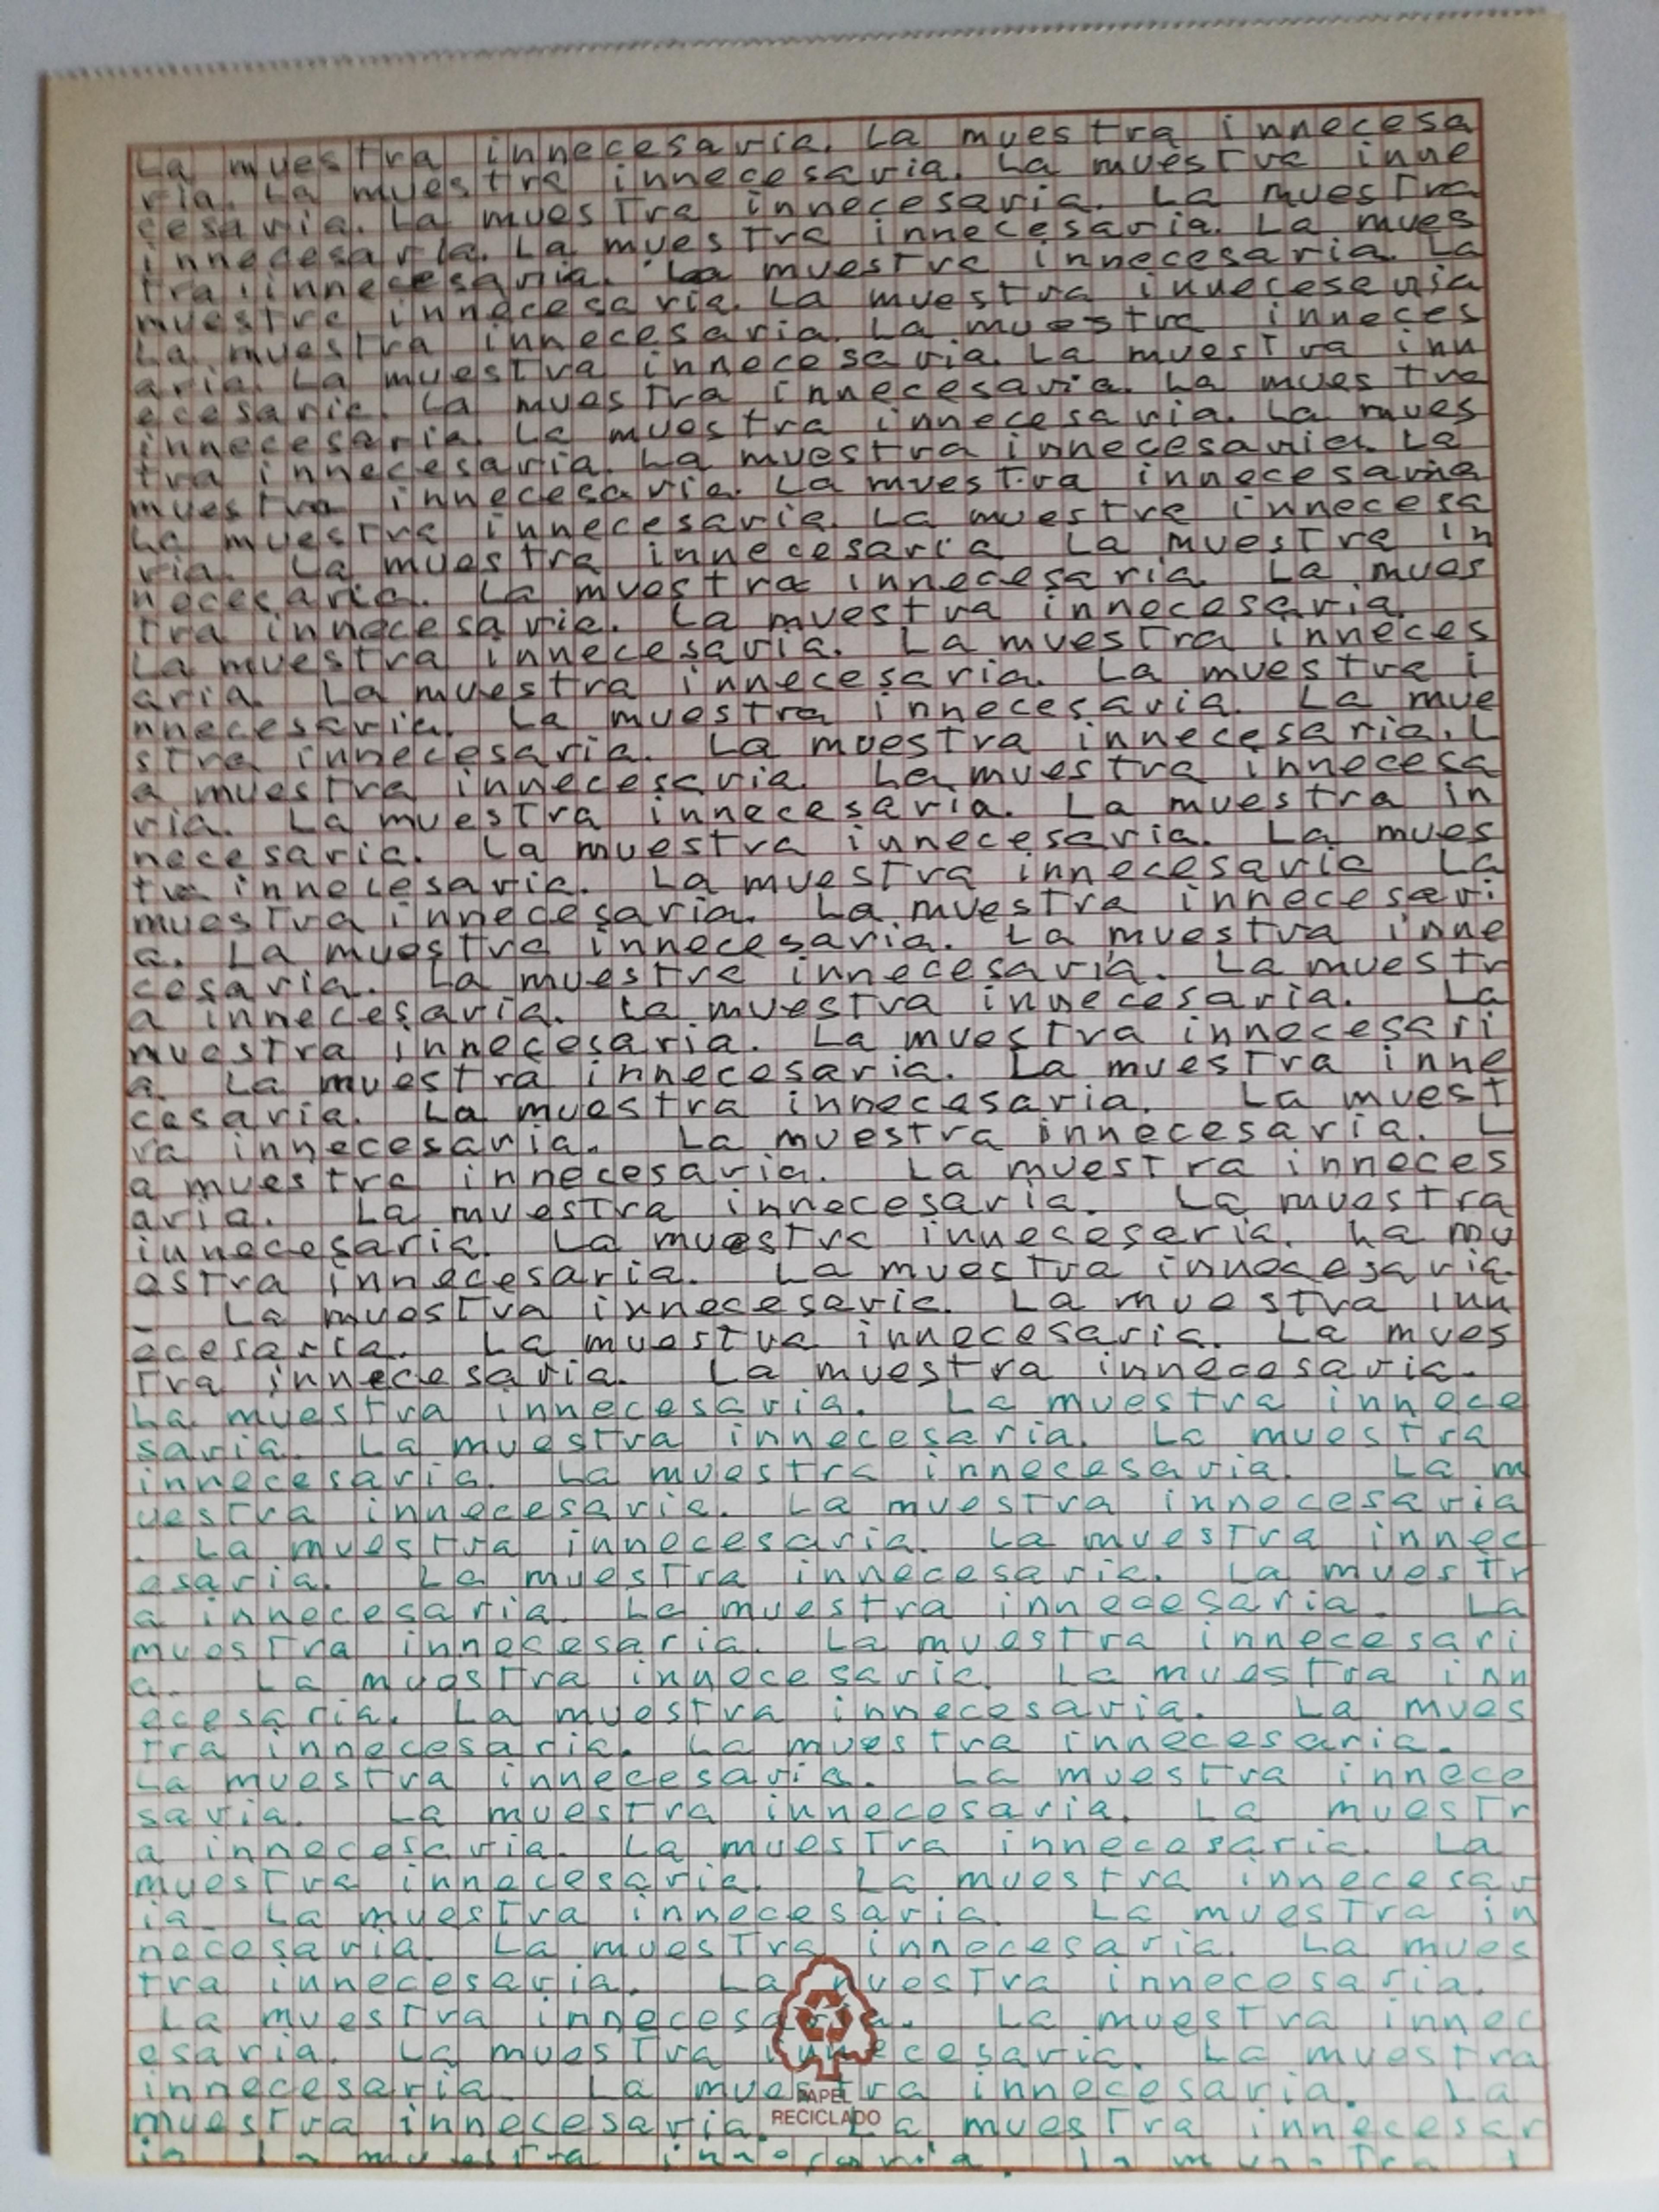 La muestra innecesaria. La muestra innecesa
ria. La muestra innecesaria. La muestra inne
cesaria. La muestra innecesaria. La muestra
innecesaria. La muestra innecesaria. La mues
tra innecesaria. La muestra innecesaria. La
muestra innecesaria. La muestra innecesaria
La muestra innecesaria. La muestra inneces
aria. La muestra innecesaria. La muestra inn
ecesaria. La muestra innecesaria. La muestra
innecesaria. La muestra innecesaria. La mues
tra innecesaria. La muestra innecesaria. La
muestra innecesaria. La muestra innecesaria
La muestra innecesaria. La muestra innecesa
ria. La muestra innecesaria La muestra in
necesaria. La muestra innecesaria. La mues
tra innecesaria. La muestra innecesaria.
La muestra innecesaria. La muestra inneces
aria. La muestra innecesaria. La muestra i
nnecesaria. La muestra innecesaria. La mue
stra innecesaria. La muestra innecesaria. L
a muestra innecesaria. La muestra innecesa
ria. La muestra innecesaria. La muestra in
necesaria. La muestra innecesaria. La mues
tra innecesaria. La muestra innecesaria La
muestra innecesaria. La muestra innecesari
a. La muestra innecesaria. La muestra inne
cesaria. La muestra innecesaria. La muestr
a innecesaria. La muestra innecesaria. La
muestra innecesaria. La muestra innecesari
a. La muestra innecesaria. La muestra inne
cesaria. La muestra innecesaria. La muest
ra innecesaria. La muestra innecesaria. L
a muestra innecesaria. La muestra inneces
aria. La muestra innecesaria. La muestra
innecesaria. La muestra innecesaria. La mu
estra innecesaria. La muestra innecesaria.
La muestra innecesaria. La muestra inn
ecesaria. La muestra innecesaria. La mues
tra innecesaria. La muestra innecesaria.
La muestra innecesaria. La muestra innece
saria. La muestra innecesaria. La muestra
innecesaria. La muestra innecesaria. La m
uestra innecesaria. La muestra innecesaria
. La muestra innecesaria. La muestra innec
esaria. La muestra innecesaria. La muestr
a innecesaria. La muestra innecesaria. La
muestra innecesaria. La muestra innecesari
a. La muestra innecesaria. La muestra inn
ecesaria. La muestra innecesaria. La mues
tra innecesaria. La muestra innecesaria.
La muestra innecesaria. La muestra innece
saria. La muestra innecesaria. La muestr
a innecesaria. La muestra innecesaria. La
muestra innecesaria. La muestra innecesar
ia. La muestra innecesaria. La muestra in
necesaria. La muestra innecesaria. La mues
tra innecesaria. La muestra innecesaria.
La muestra innecesaria. La muestra innec
esaria. La muestra innecesaria. La muestra
innecesaria. La muestra innecesaria. La
PAPEL
RECICLADO
muestra innecesaria. La muestra innecesar
ia La muestra innecesaria. La muestra i